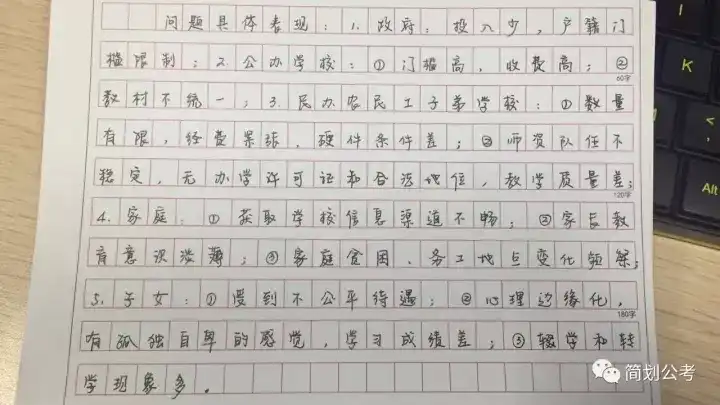 问题具体表现：1.政府：投入少，户籍门
槛限制；2.公办学校：①门槛高，收费高；②
60字
教材不统一；3.民办农民工子弟学校：①数量
有限，经费紧张，硬件条件差；②师资队伍不
稳定，无办学许可证和合法地位，教学质量差；
120字
4.家庭：①获取学校信息渠道不畅；②家长教
育意识淡薄；③家庭贫困、务工地点变化频繁；
5.子女：①受到不公平待遇；②心理边缘化，
180字
有孤独自卑的感觉，学习成绩差；③辍学和转
学现象多。
简划公考
K
Alt